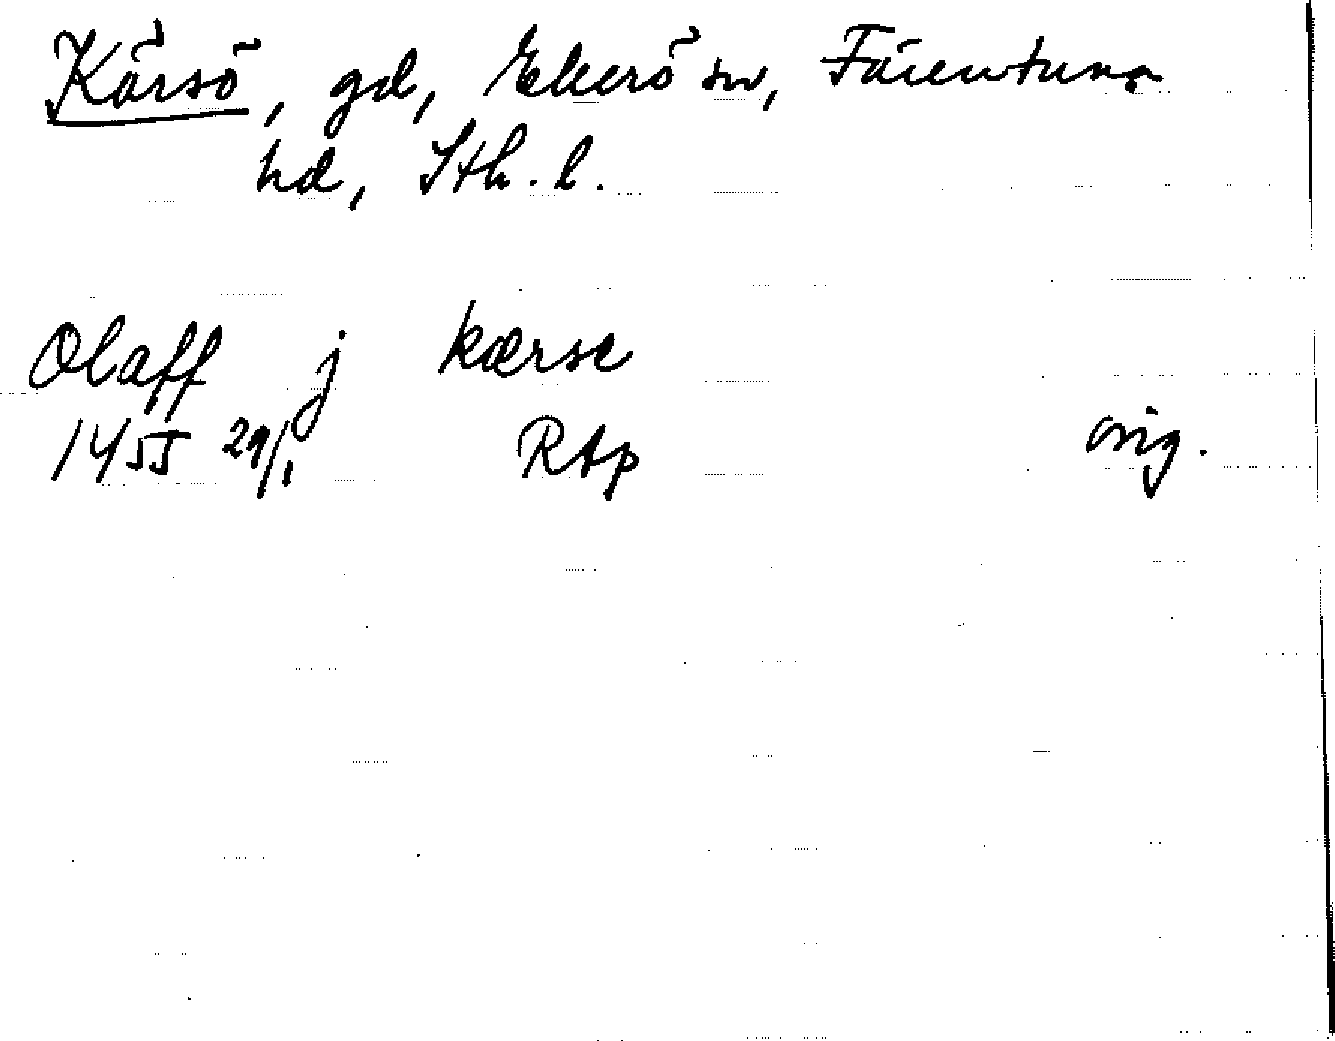 Kärsö, gd, Ekerö sn, Färentuna
hd, Sth. l.
Olaff j kærse
1455 29/1 RAp orig.